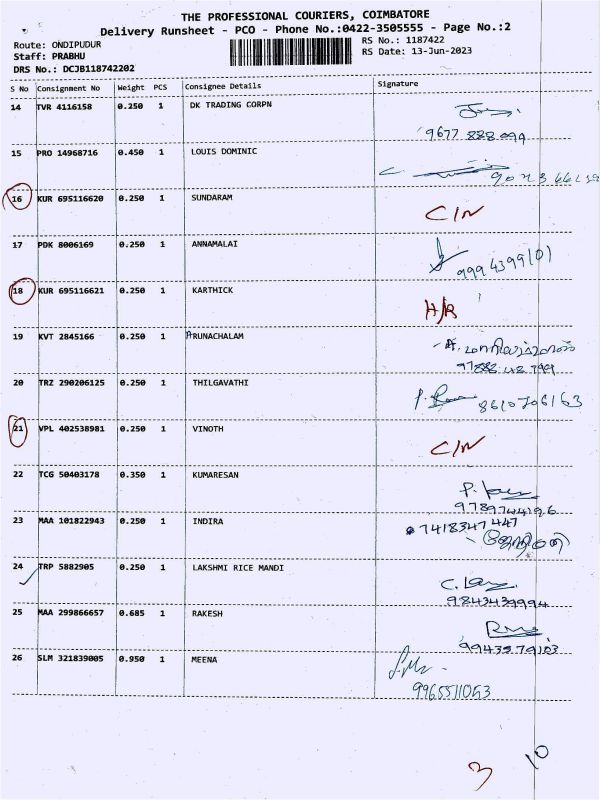 THE PROFESSIONAL COURIERS, COIMBATORE
Delivery Runsheet - PCO - Phone No.:0422-3505555 - Page No.:2
Route: ONDIPUDUR RS No.: 1187422
Staff: PRABHU RS Date: 13-Jun-2023
DRS No.: DCJB118742202
S No Consignment No Weight PCS Consignee Details Signature
14 TVR 4116158 0.250 1 DK TRADING CORPN
9677 888 099
15 PRO 14968716 0.450 1 LOUIS DOMINIC
16 KUR 695116620 0.250 1 SUNDARAM C/N
17 PDK 8006169 0.250 1 ANNAMALAI
9994399101
18 KUR 695116621 0.250 1 KARTHICK H/R
19 KVT 2845166 0.250 1 ARUNACHALAM
97888 48 799
20 TRZ 290206125 0.250 1 THILGAVATHI 8610706163
21 VPL 402538981 0.250 1 VINOTH C/N
22 TCG 50403178 0.350 1 KUMARESAN
9789744196
23 MAA 101822943 0.250 1 INDIRA 7418347447
24 TRP 5882905 0.250 1 LAKSHMI RICE MANDI
9843439994
25 MAA 299866657 0.685 1 RAKESH
9943579103
26 SLM 321839005 0.950 1 MEENA
9965511053
3 10